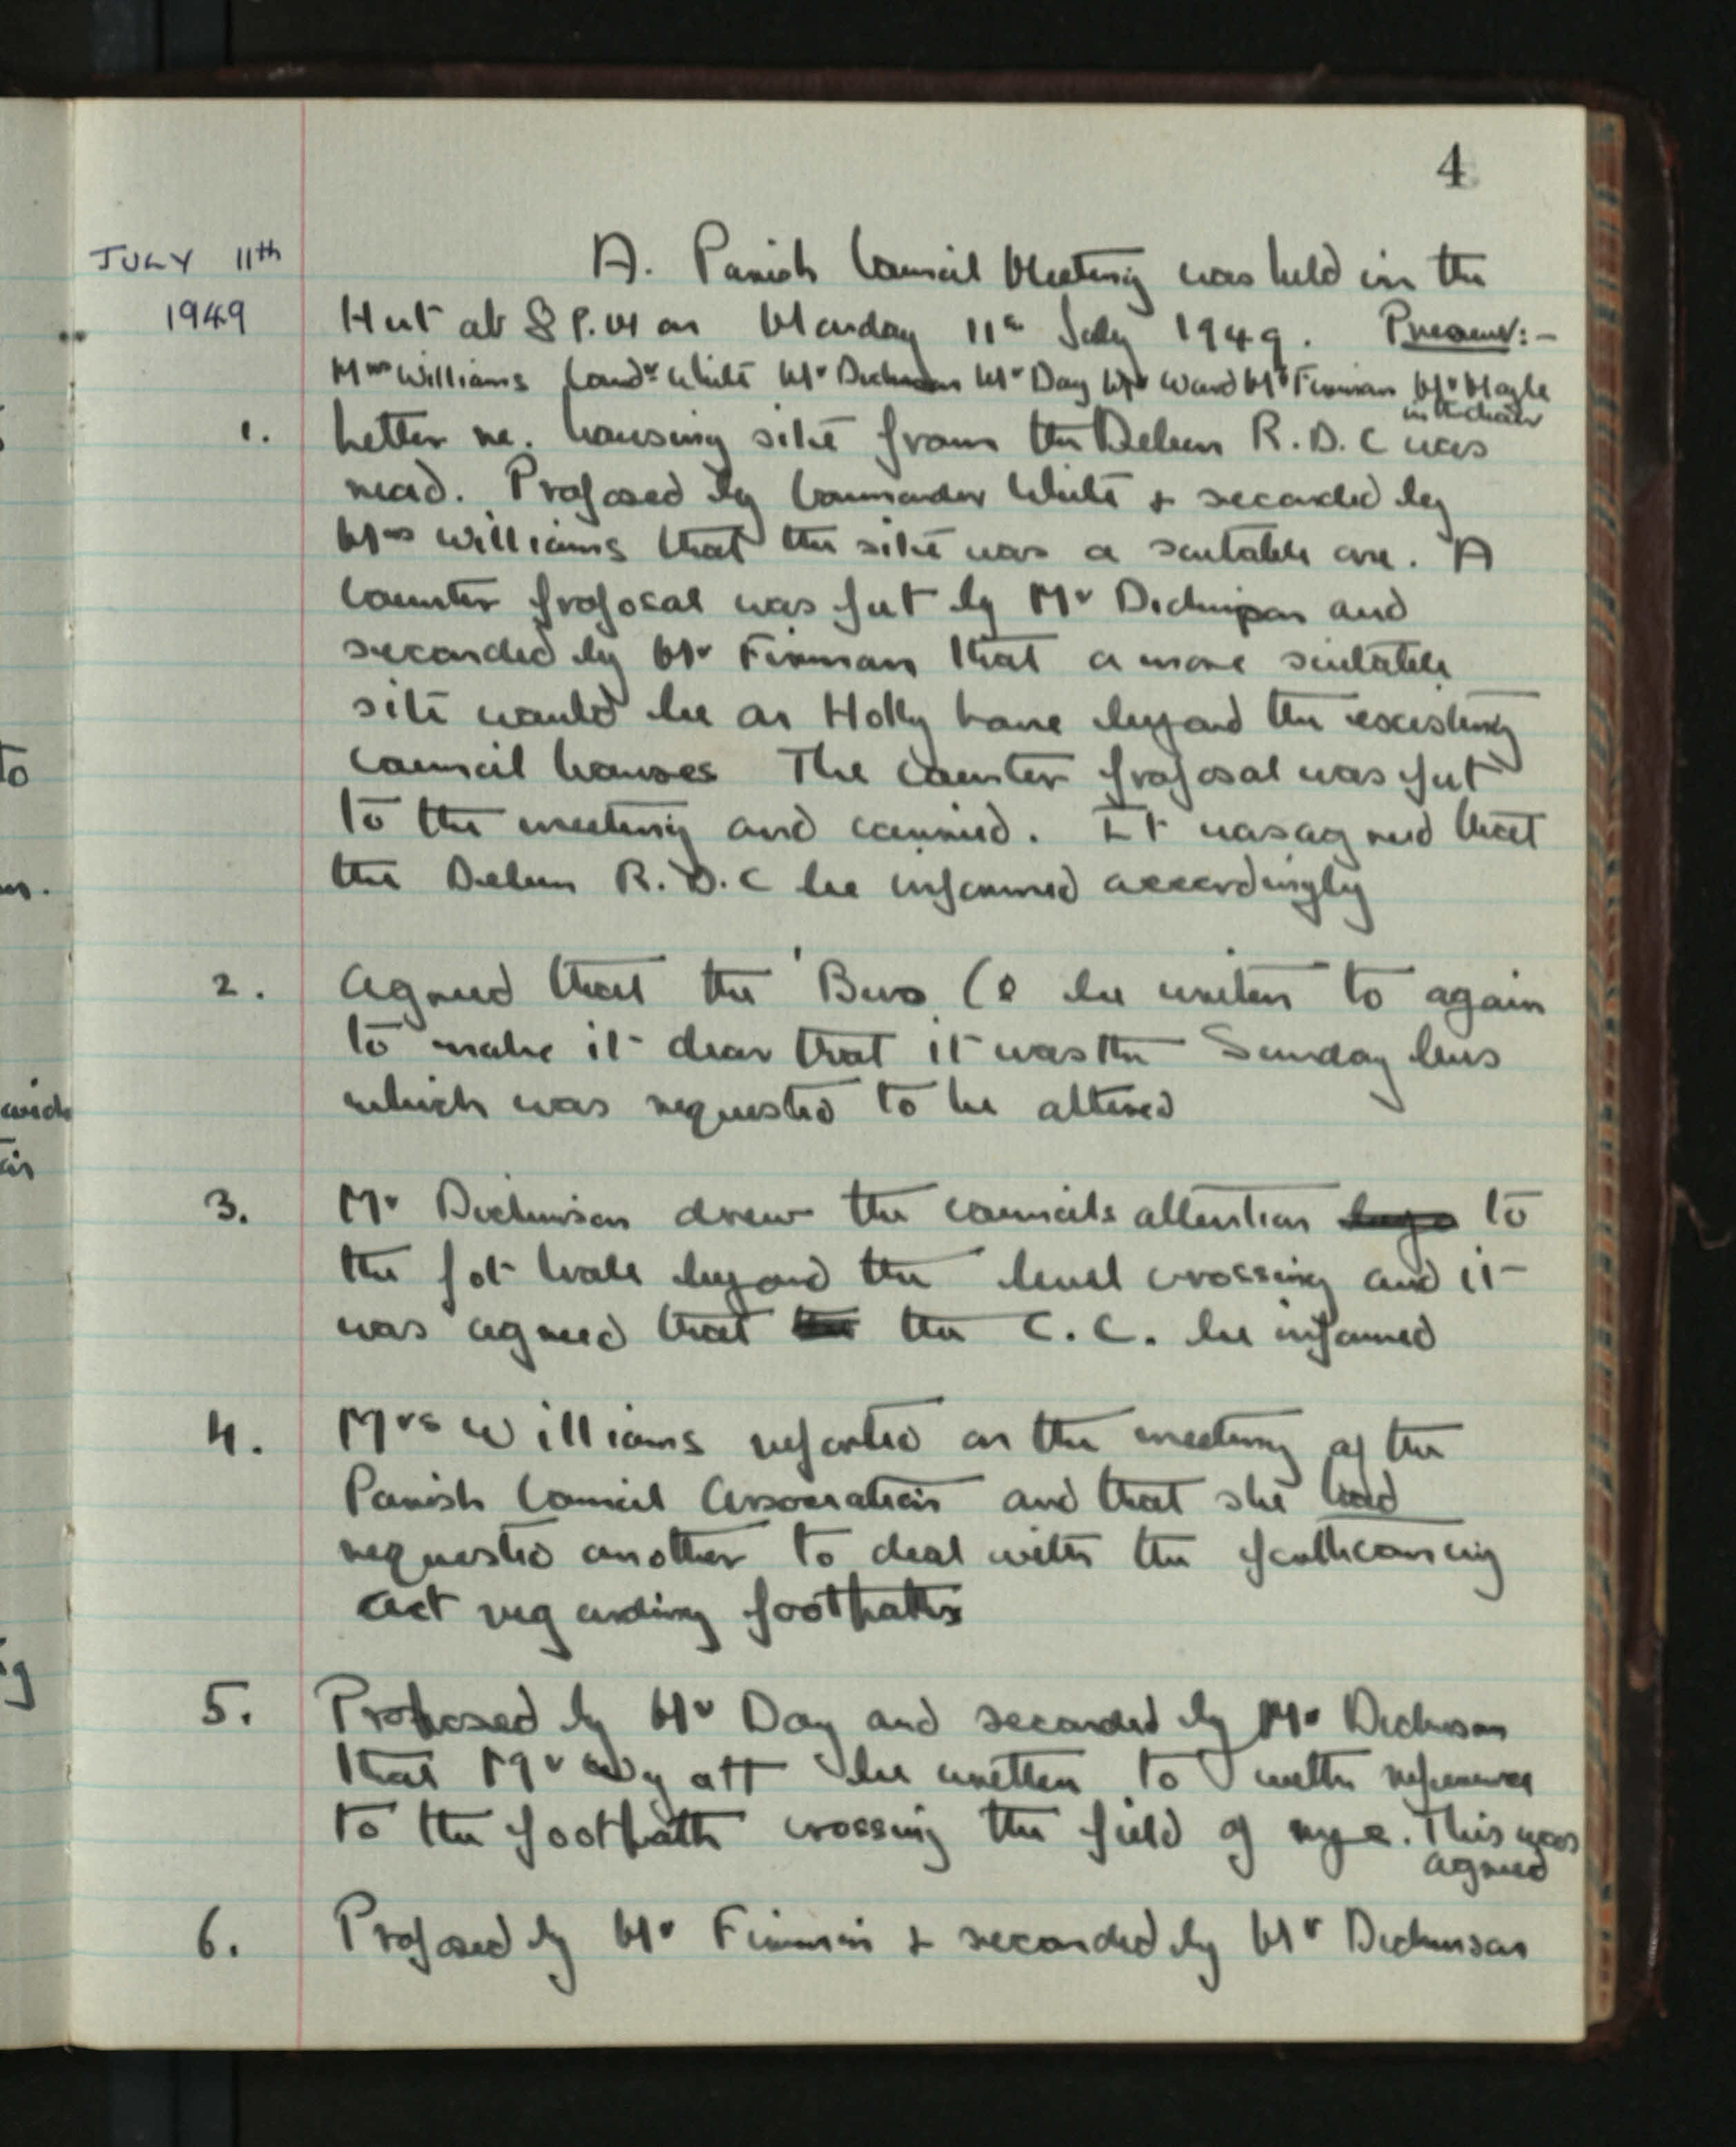 4
JULY 11th
1949
A. Parish Council Meeting was held in the
Hut at 8 P.M on Monday 11th July 1949. Present:-
Mrs Williams Comdr White Mr Dickinson Mr Day Mr Ward Mr Finman Mr Hayle
in the chair
1. Letter re. housing site from the Deben R.D.C was
read. Proposed by Commander White + seconded by
Mrs Williams that the site was a suitable one. A
Counter proposal was put by Mr Dickinson and
seconded by Mr Finman that a more suitable
site would be on Holly Lane beyond the excisting
Council houses The Counter proposal was put
to the meeting and carried. It was agreed that
the Deben R.D.C be informed accordingly
2. Agreed that the Bus Co be writen to again
to make it clear that it was the Sunday bus
which was requested to be altered
3. Mr Dickinson drew the councils attention to
the pot hole beyond the level crossing and it
was agreed that the C.C. be informed
4. Mrs Williams reported on the meeting of the
Parish Council Association and that she had
requested another to deal with the forthcoming
act regarding footpaths
5. Proposed by Mr Day and seconded by Mr Dickinson
that Mr Wyatt be written to with reference
to the footpath crossing the field of rye. This was
agreed
6. Proposed by Mr Finman + seconded by Mr Dickinson